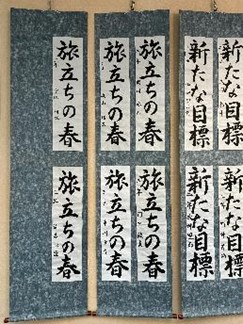 新たな目標
新たな目標
旅立ちの春
旅立ちの春
旅立ちの春
旅立ちの春
旅立ちの春
旅立ちの春
新たな目標
新たな目標